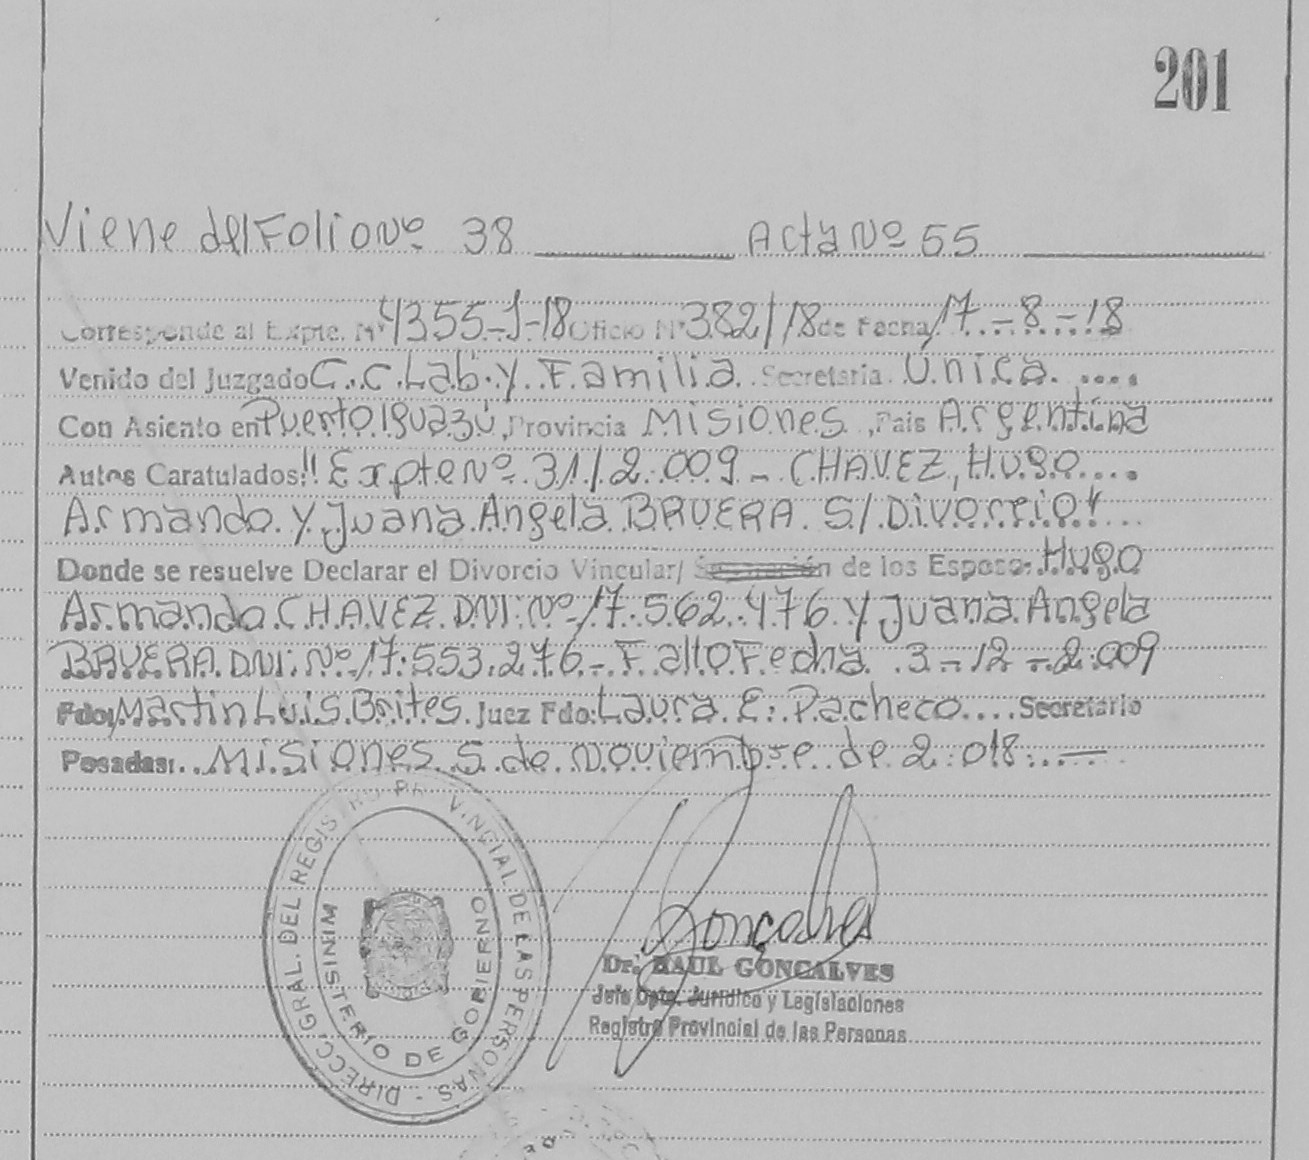 201
Viene del Folio Nº 38 Acta Nº 55
Corresponde al Expte. Nº 4355-J-18 Oficio Nº 382/18 de Fecha, 17-8-18
Venido del Juzgado C.C.Lab. y Familia Secretaria Única ....
Con Asiento en Puerto Iguazú, Provincia Misiones, Pais Argentina
Autos Caratulados: "Expte Nº 31/2.009 - CHAVEZ, Hugo....
Armando y Juana Angela BRUERA S/ Divorcio"...
Donde se resuelve Declarar el Divorcio Vincular/ Separación de los Esposos: Hugo
Armando CHAVEZ DNI: Nº 17.562.476 y Juana Angela
BRUERA DNI: Nº 17.553.276.- Fallo Fecha 3-12-2.009
Fdo; Martin Luis Brites Juez Fdo: Laura E. Pacheco.... Secretario
Posadas: Misiones 5 de noviembre de 2.018.
DIRECC. GRAL. DEL REGISTRO PROVINCIAL DE LAS PERSONAS -
MINISTERIO DE GOBIERNO
Goncalves
Dr. RAUL GONCALVES
Jefe Dpto. Juridico y Legislaciones
Registro Provincial de las Personas